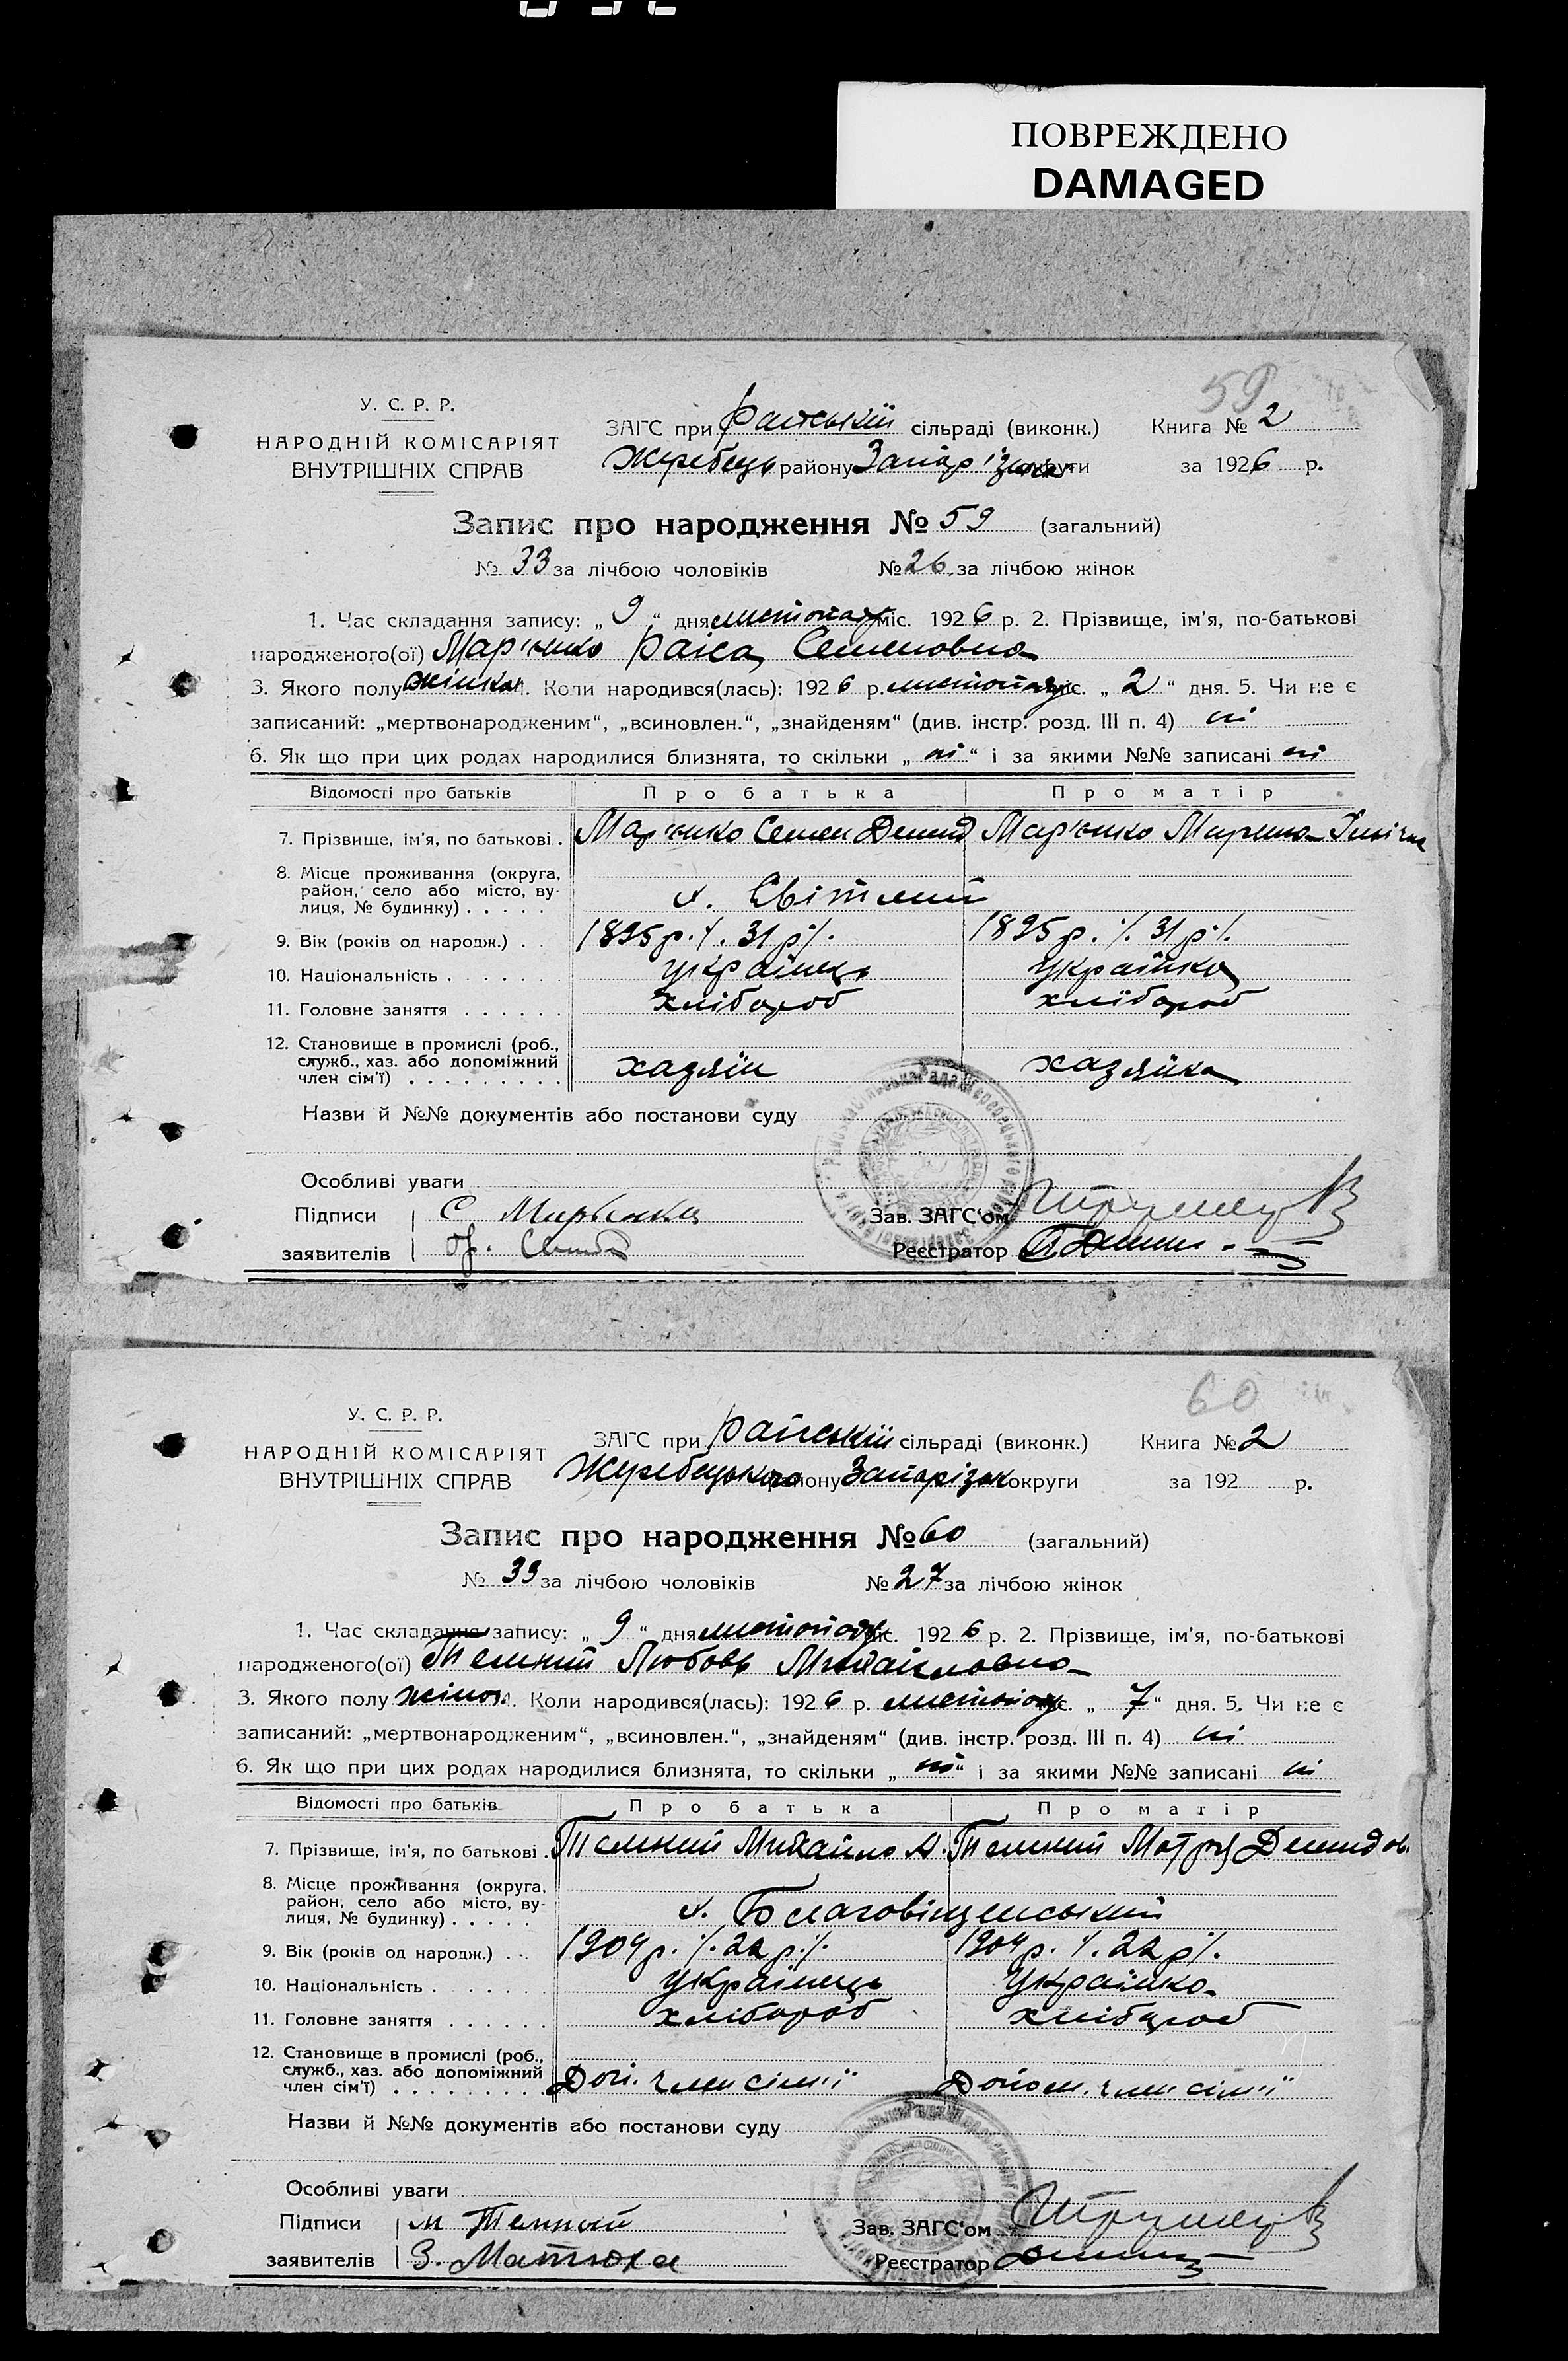 ПОВРЕЖДЕНО
DAMAGED
59
У. С. Р. Р.
НАРОДНІЙ КОМІСАРІЯТ
ВНУТРІШНІХ СПРАВ
ЗАГС при Райській сільраді (виконк.) Книга № 2
Жеребець району Запоріз округи за 1926 р.
Запис про народження № 59 (загальний)
№ 33 за лічбою чоловіків № 26 за лічбою жінок
1. Час складання запису: „ 9 “ дня листопад міс. 1926 р. 2. Прізвище, ім'я, по-батькові
народженого(ої) Мар'єнко Раїса Семеновна
3. Якого полу жінка. Коли народився(лась): 1926 р. листопад міс. „ 2 “ дня. 5. Чи не є
записаний: „мертвонародженим“, „всиновлен.“, „знайденям“ (див. інстр. розд. III п. 4) ні
6. Як що при цих родах народилися близнята, то скільки „ ні “ і за якими №№ записані ні
Відомості про батьків Про батька Про матір
7. Прізвище, ім'я, по батькові . Мар'єнко Семен Демид Мар'єнко Марина
8. Місце проживання (округа,
район, село або місто, ву-
лиця, № будинку) . . . . . х. Світлий
9. Вік (років од народж.) . . 1895 р. /. 31 р /. 1895 р. /. 31 р /.
10. Національність . . . . . українець українка
11. Головне заняття . . . . . . хлібороб хлібороб
12. Становище в промислі (роб.,
служб., хаз. або допоміжний
член сім'ї) . . . . . . . . . хазяїн хазяйка
Назви й №№ документів або постанови суду
Особливі уваги
Підписи С Марьенко Зав. ЗАГС'ом
заявителів Реєстратор
60
У. С. Р. Р.
НАРОДНІЙ КОМІСАРІЯТ
ВНУТРІШНІХ СПРАВ
ЗАГС при Райській сільраді (виконк.) Книга № 2
Жеребецького району Запорізьк округи за 192 р.
Запис про народження № 60 (загальний)
№ 33 за лічбою чоловіків № 27 за лічбою жінок
1. Час складання запису: „ 9 “ дня листопад міс. 1926 р. 2. Прізвище, ім'я, по-батькові
народженого(ої) Темний Любовь Михайловна
3. Якого полу жіноч. Коли народився(лась): 1926 р. листопад міс. „ 7 “ дня. 5. Чи не є
записаний: „мертвонародженим“, „всиновлен.“, „знайденям“ (див. інстр. розд. III п. 4) ні
6. Як що при цих родах народилися близнята, то скільки „ ні “ і за якими №№ записані ні
Відомості про батьків Про батька Про матір
7. Прізвище, ім'я, по батькові . Темний Михайло А. Темний Мотря Демидов.
8. Місце проживання (округа,
район, село або місто, ву-
лиця, № будинку) . . . . . х. Благовіщенський
9. Вік (років од народж.) . . 1904 р. /. 22 р /. 1904 р. /. 22 р /.
10. Національність . . . . . українець українка
11. Головне заняття . . . . . . хлібороб хлібороб
12. Становище в промислі (роб.,
служб., хаз. або допоміжний
член сім'ї) . . . . . . . . . Доп. член сімї Допом. член сімї
Назви й №№ документів або постанови суду
Особливі уваги
Підписи М Темный Зав. ЗАГС'ом
заявителів З. Матюха Реєстратор